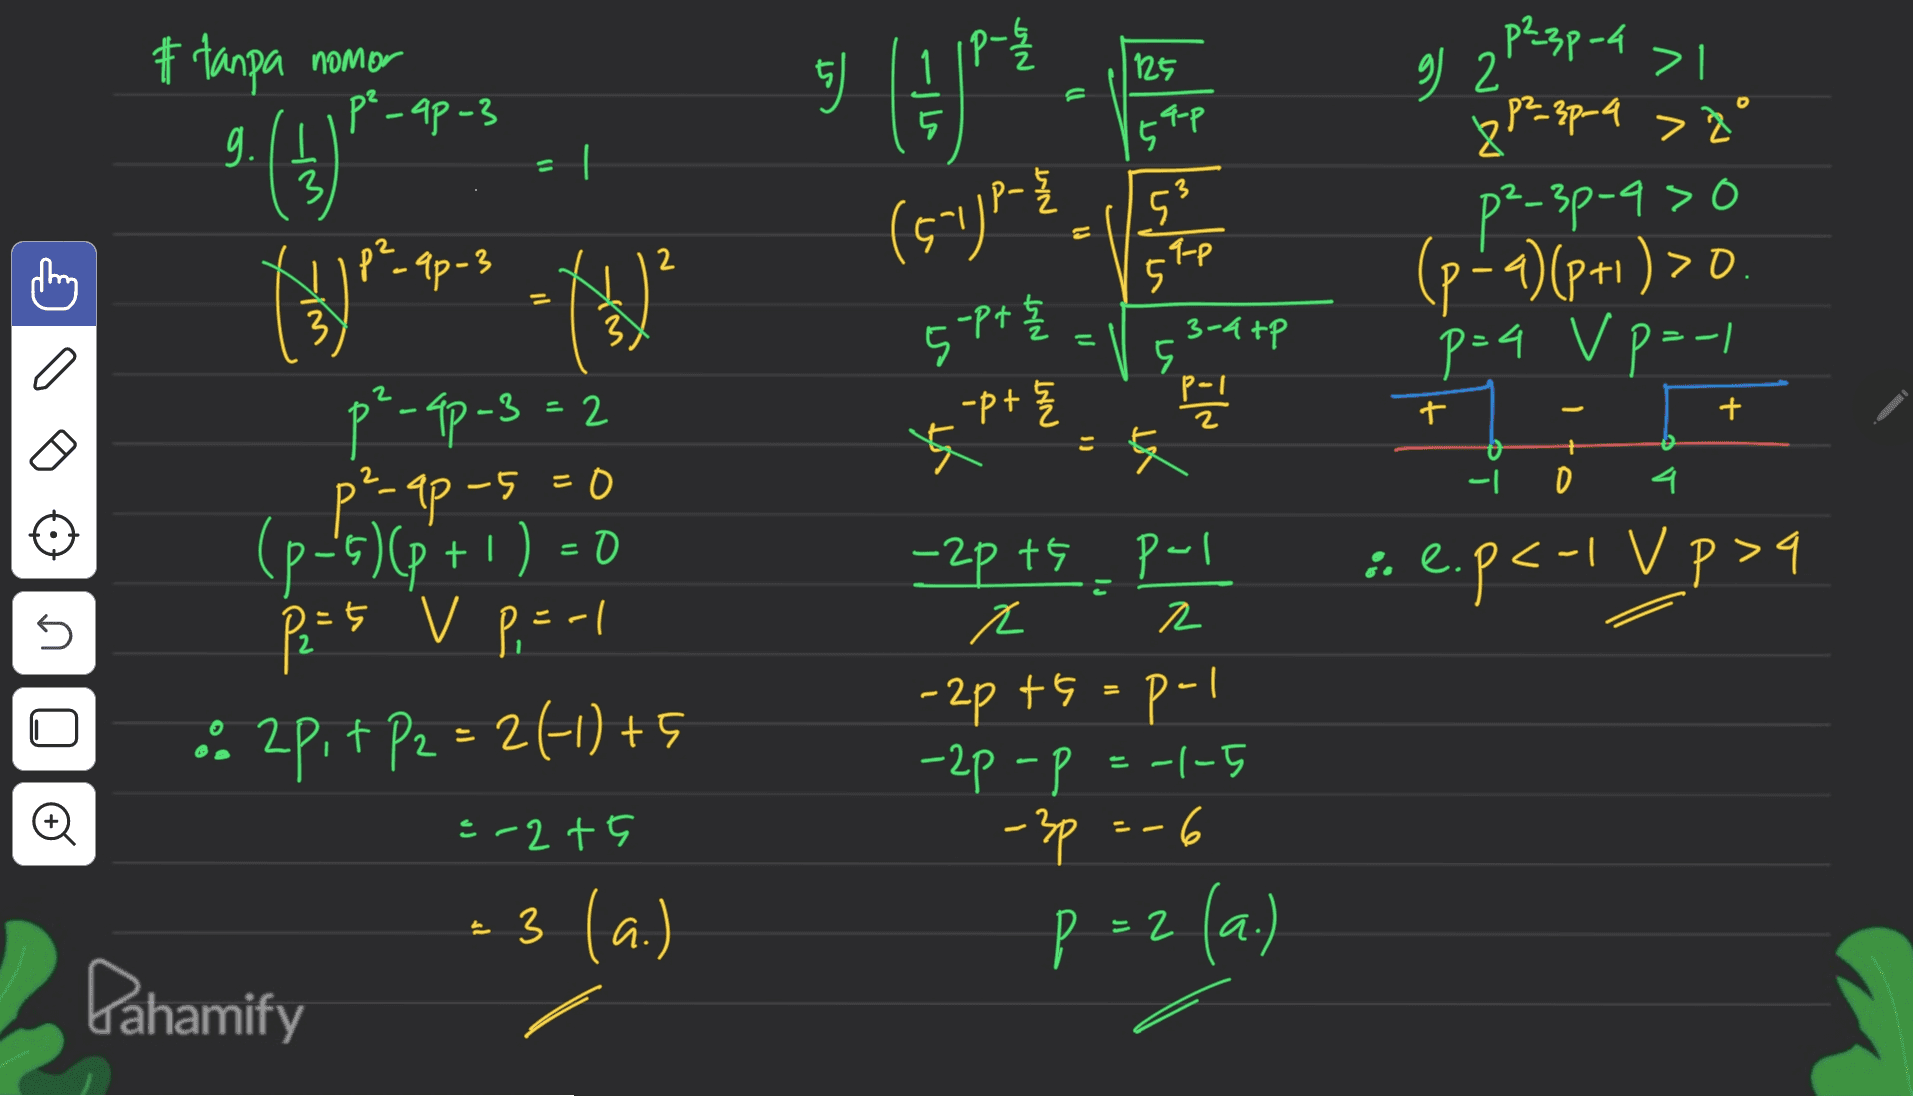 # tanpa nomor
g. (1/3)^(p²-4p-3) = 1
(1/3)^(p²-4p-3) = (1/3)²
p²-4p-3 = 2
p²-4p-5 = 0
(p-5)(p+1) = 0
p₂=5 V p₁=-1
∴ 2p₁+p₂ = 2(-1)+5
= -2+5
= 3 (a.)
5) (1/5)^(p-5/2) = √(125/5^(4-p))
(5⁻¹)^(p-5/2) = √(5³/5^(4-p))
5^(-p+5/2) = √(5^(3-4+p))
5^(-p+5/2) = 5^((p-1)/2)
(-2p+5)/2 = (p-1)/2
-2p+5 = p-1
-2p-p = -1-5
-3p = -6
p = 2 (a.)
g) 2^(p²-3p-4) > 1
2^(p²-3p-4) > 2⁰
p²-3p-4 > 0
(p-4)(p+1) > 0.
p=4 V p=-1
+ - +
-1 0 4
∴ e. p<-1 V p>4
Pahamify